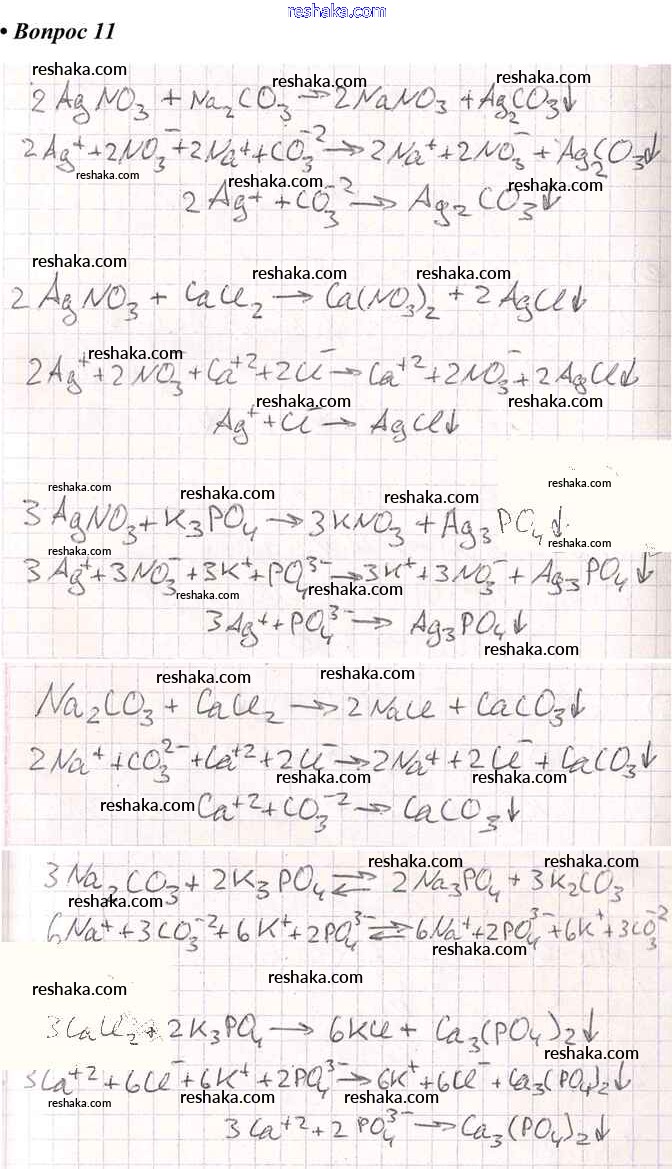 reshaka.com
• Вопрос 11
reshaka.com reshaka.com reshaka.com
2AgNO₃ + Na₂CO₃ → 2NaNO₃ + Ag₂CO₃↓
2Ag⁺ + 2NO₃⁻ + 2Na⁺ + CO₃⁻² → 2Na⁺ + 2NO₃⁻ + Ag₂CO₃↓
reshaka.com reshaka.com reshaka.com
2Ag⁺ + CO₃⁻² → Ag₂CO₃↓
reshaka.com reshaka.com reshaka.com
2AgNO₃ + CaCl₂ → Ca(NO₃)₂ + 2AgCl↓
reshaka.com
2Ag⁺ + 2NO₃⁻ + Ca⁺² + 2Cl⁻ → Ca⁺² + 2NO₃⁻ + 2AgCl↓
reshaka.com reshaka.com
Ag⁺ + Cl⁻ → AgCl↓
reshaka.com reshaka.com reshaka.com reshaka.com
3AgNO₃ + K₃PO₄ → 3KNO₃ + Ag₃PO₄↓
reshaka.com
3Ag⁺ + 3NO₃⁻ + 3K⁺ + PO₄³⁻ → 3K⁺ + 3NO₃⁻ + Ag₃PO₄↓
reshaka.com reshaka.com
3Ag⁺ + PO₄³⁻ → Ag₃PO₄↓
reshaka.com
reshaka.com reshaka.com
Na₂CO₃ + CaCl₂ → 2NaCl + CaCO₃↓
2Na⁺ + CO₃²⁻ + Ca⁺² + 2Cl⁻ → 2Na⁺ + 2Cl⁻ + CaCO₃↓
reshaka.com reshaka.com
reshaka.com Ca⁺² + CO₃⁻² → CaCO₃↓
reshaka.com reshaka.com
3Na₂CO₃ + 2K₃PO₄ ⇄ 2Na₃PO₄ + 3K₂CO₃
6Na⁺ + 3CO₃⁻² + 6K⁺ + 2PO₄³⁻ ⇄ 6Na⁺ + 2PO₄³⁻ + 6K⁺ + 3CO₃⁻²
reshaka.com reshaka.com
reshaka.com
reshaka.com
3CaCl₂ + 2K₃PO₄ → 6KCl + Ca₃(PO₄)₂↓
reshaka.com
3Ca⁺² + 6Cl⁻ + 6K⁺ + 2PO₄³⁻ → 6K⁺ + 6Cl⁻ + Ca₃(PO₄)₂↓
reshaka.com reshaka.com reshaka.com
3Ca⁺² + 2PO₄³⁻ → Ca₃(PO₄)₂↓
reshaka.com